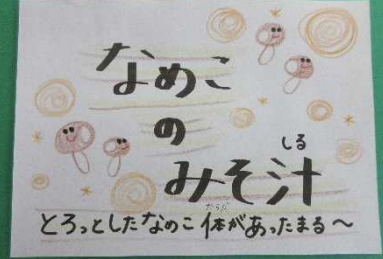 なめこ
の
みそ汁
しる
とろっとしたなめこ 体があったまる〜
からだ